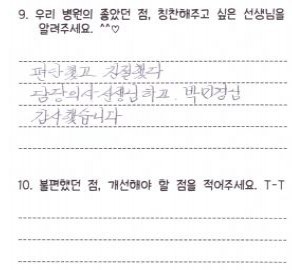 9. 우리 병원의 좋았던 점, 칭찬해주고 싶은 선생님을
알려주세요. ^^♡
편안했고 친절했다
담당의사 선생님하고. 박민경님
감사했습니다
10. 불편했던 점, 개선해야 할 점을 적어주세요. T-T